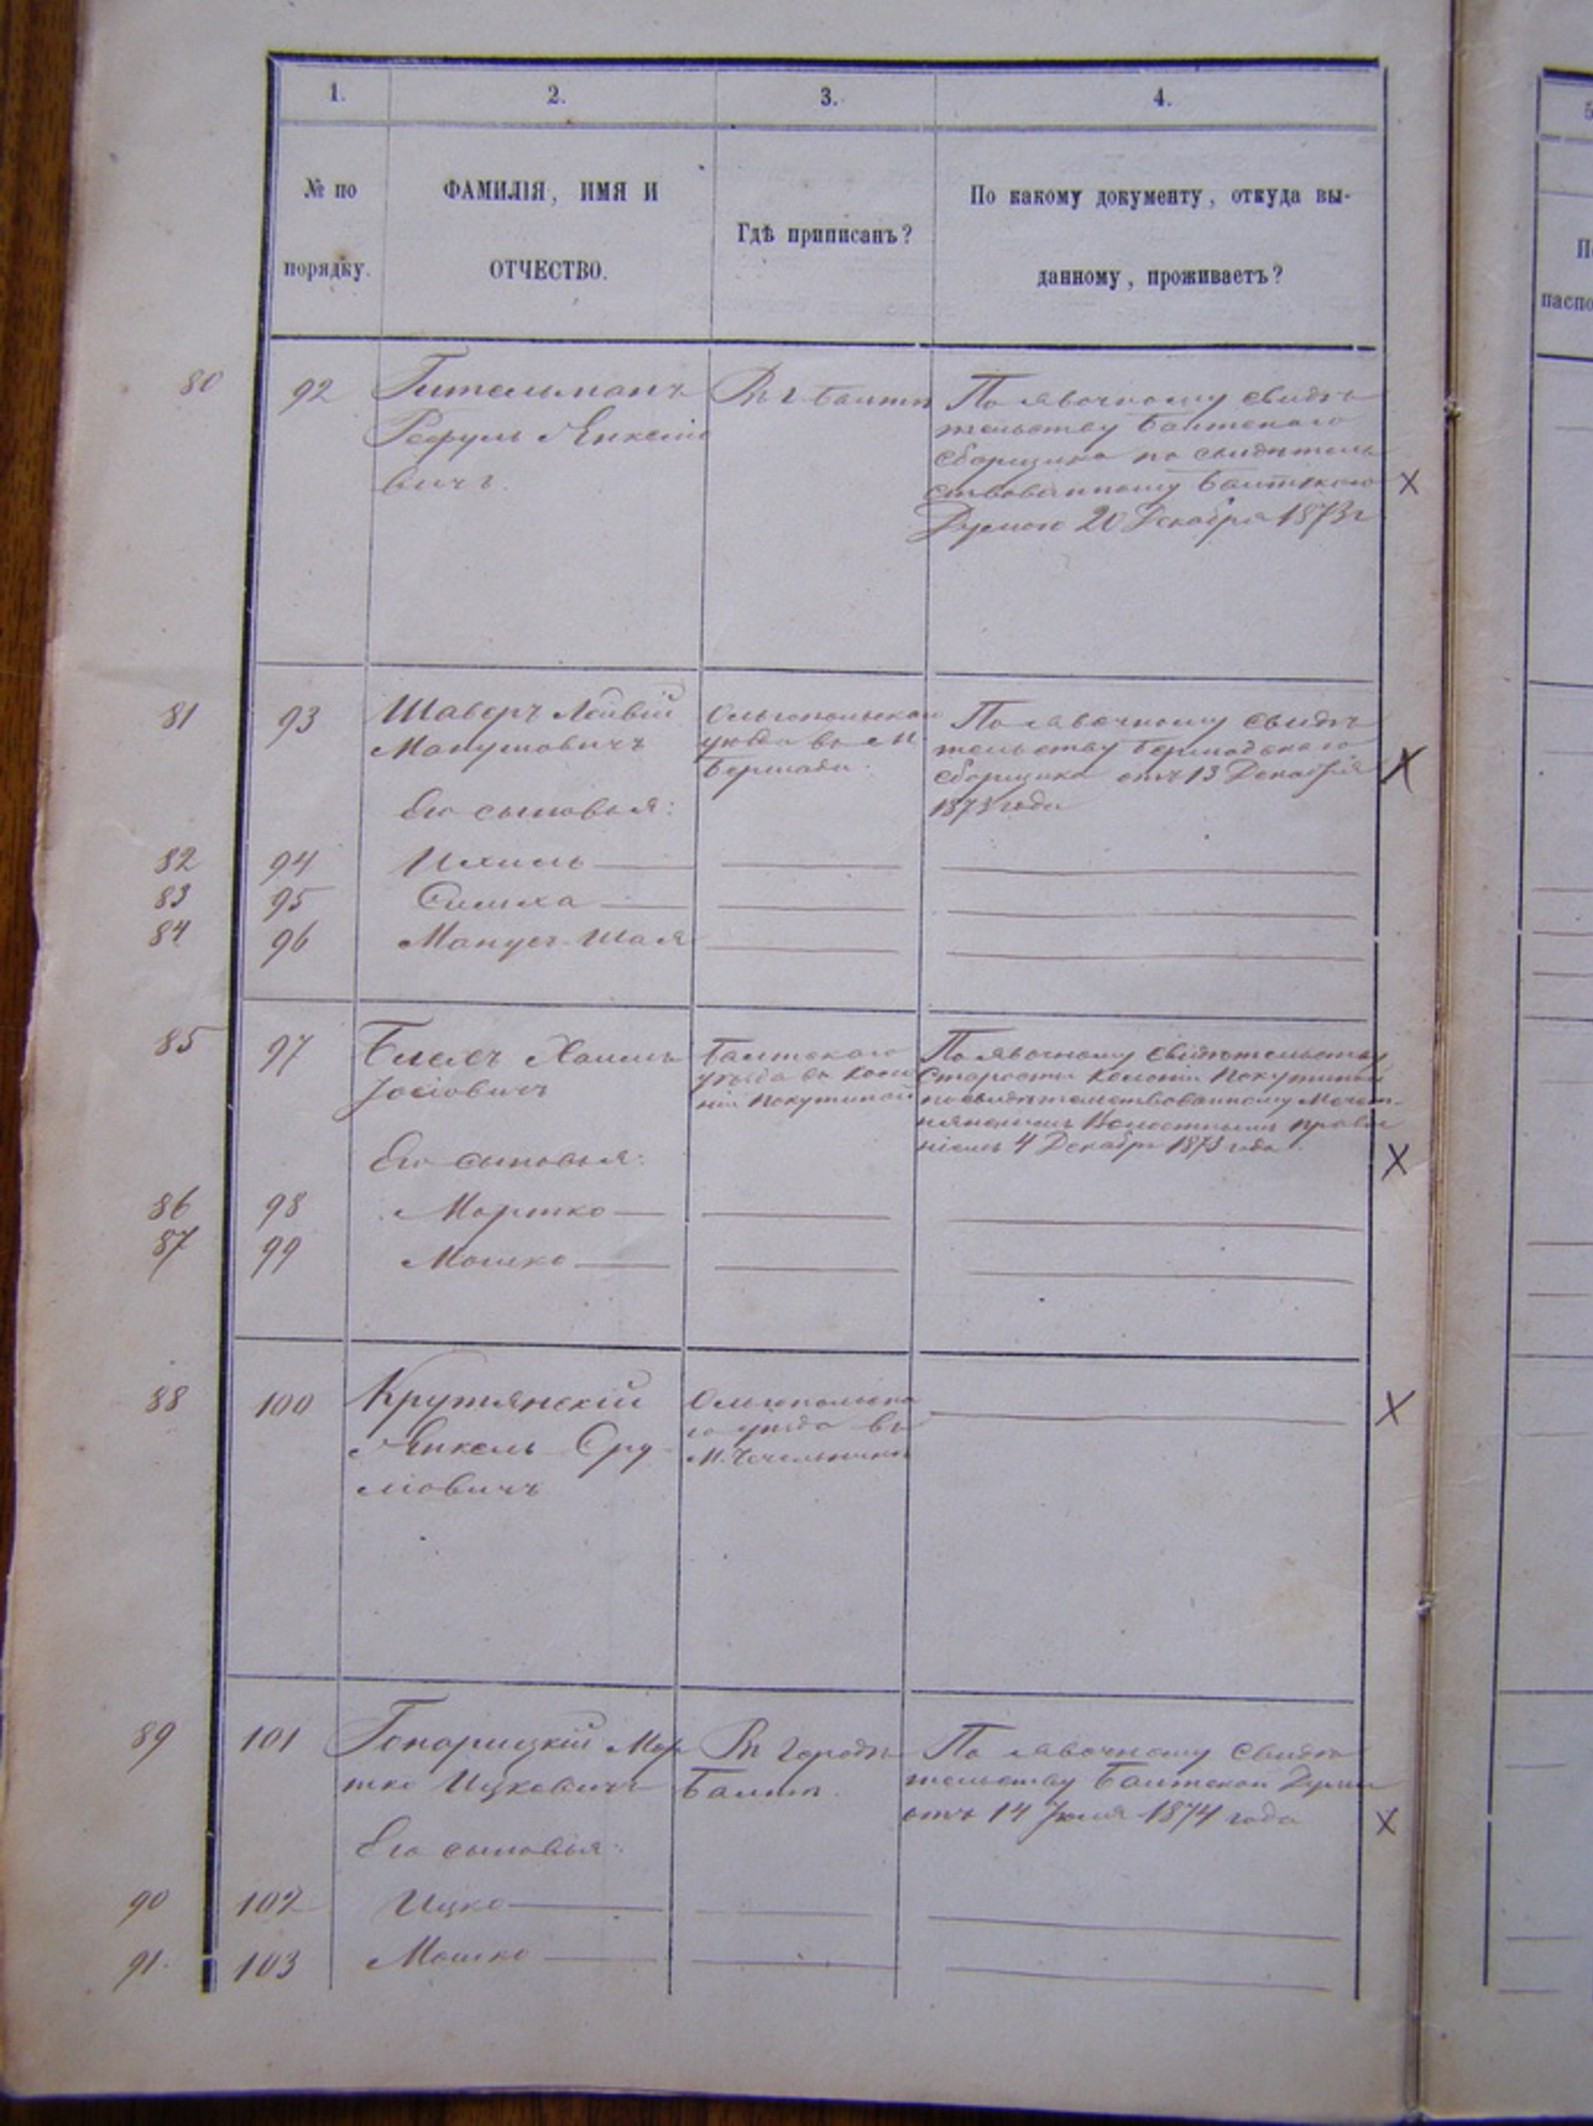 1. 2. 3. 4.
№ по порядку.
ФАМИЛІЯ, ИМЯ И
ОТЧЕСТВО.
Гдѣ приписанъ?
По какому документу, откуда вы-
данному, проживаетъ?
80 92 Гительманъ
Рефулъ Янкеліо
вичъ.
Въ г. Балтѣ
По явочному свидѣ
тельству Балтскаго
сборщика по свидѣтель
ствованному Балтскою
Думою 20 Декабря 1873 г
X
81 93 Шаверъ Лейвій
Манусовичъ
Ольгопольскаго
уѣзда въ м.
Бершади.
По явочному свидѣ
тельству Бершадскаго
сборщика отъ 13 Декабря
1873 года
X
Его сыновья:
82 94 Ихиль
83 95 Симха
84 96 Манусъ-Шая
85 97 Хаимъ
Іосіовичъ
Балтскаго
уѣзда въ коло
ніи Покутиной
По явочному свидѣтельству
Старосты колоніи Покутиной
по свидѣтельствованному
Волостнымъ правле
ніемъ 4 Декабря 1873 года.
X
Его сыновья:
86 98 Мортко
87 99 Мошко
88 100 Крутянскій
Янкель Сру
ліовичъ
Ольгопольска
го уѣзда въ
м. Чечельникѣ
X
89 101 Гонорицкій Мор
тко Ицковичъ
Въ городѣ
Балтѣ.
По явочному свидѣ
тельству Балтской Думы
отъ 14 Іюля 1874 года
X
Его сыновья:
90 102 Ицко
91. 103 Мошко
5
П
паспо